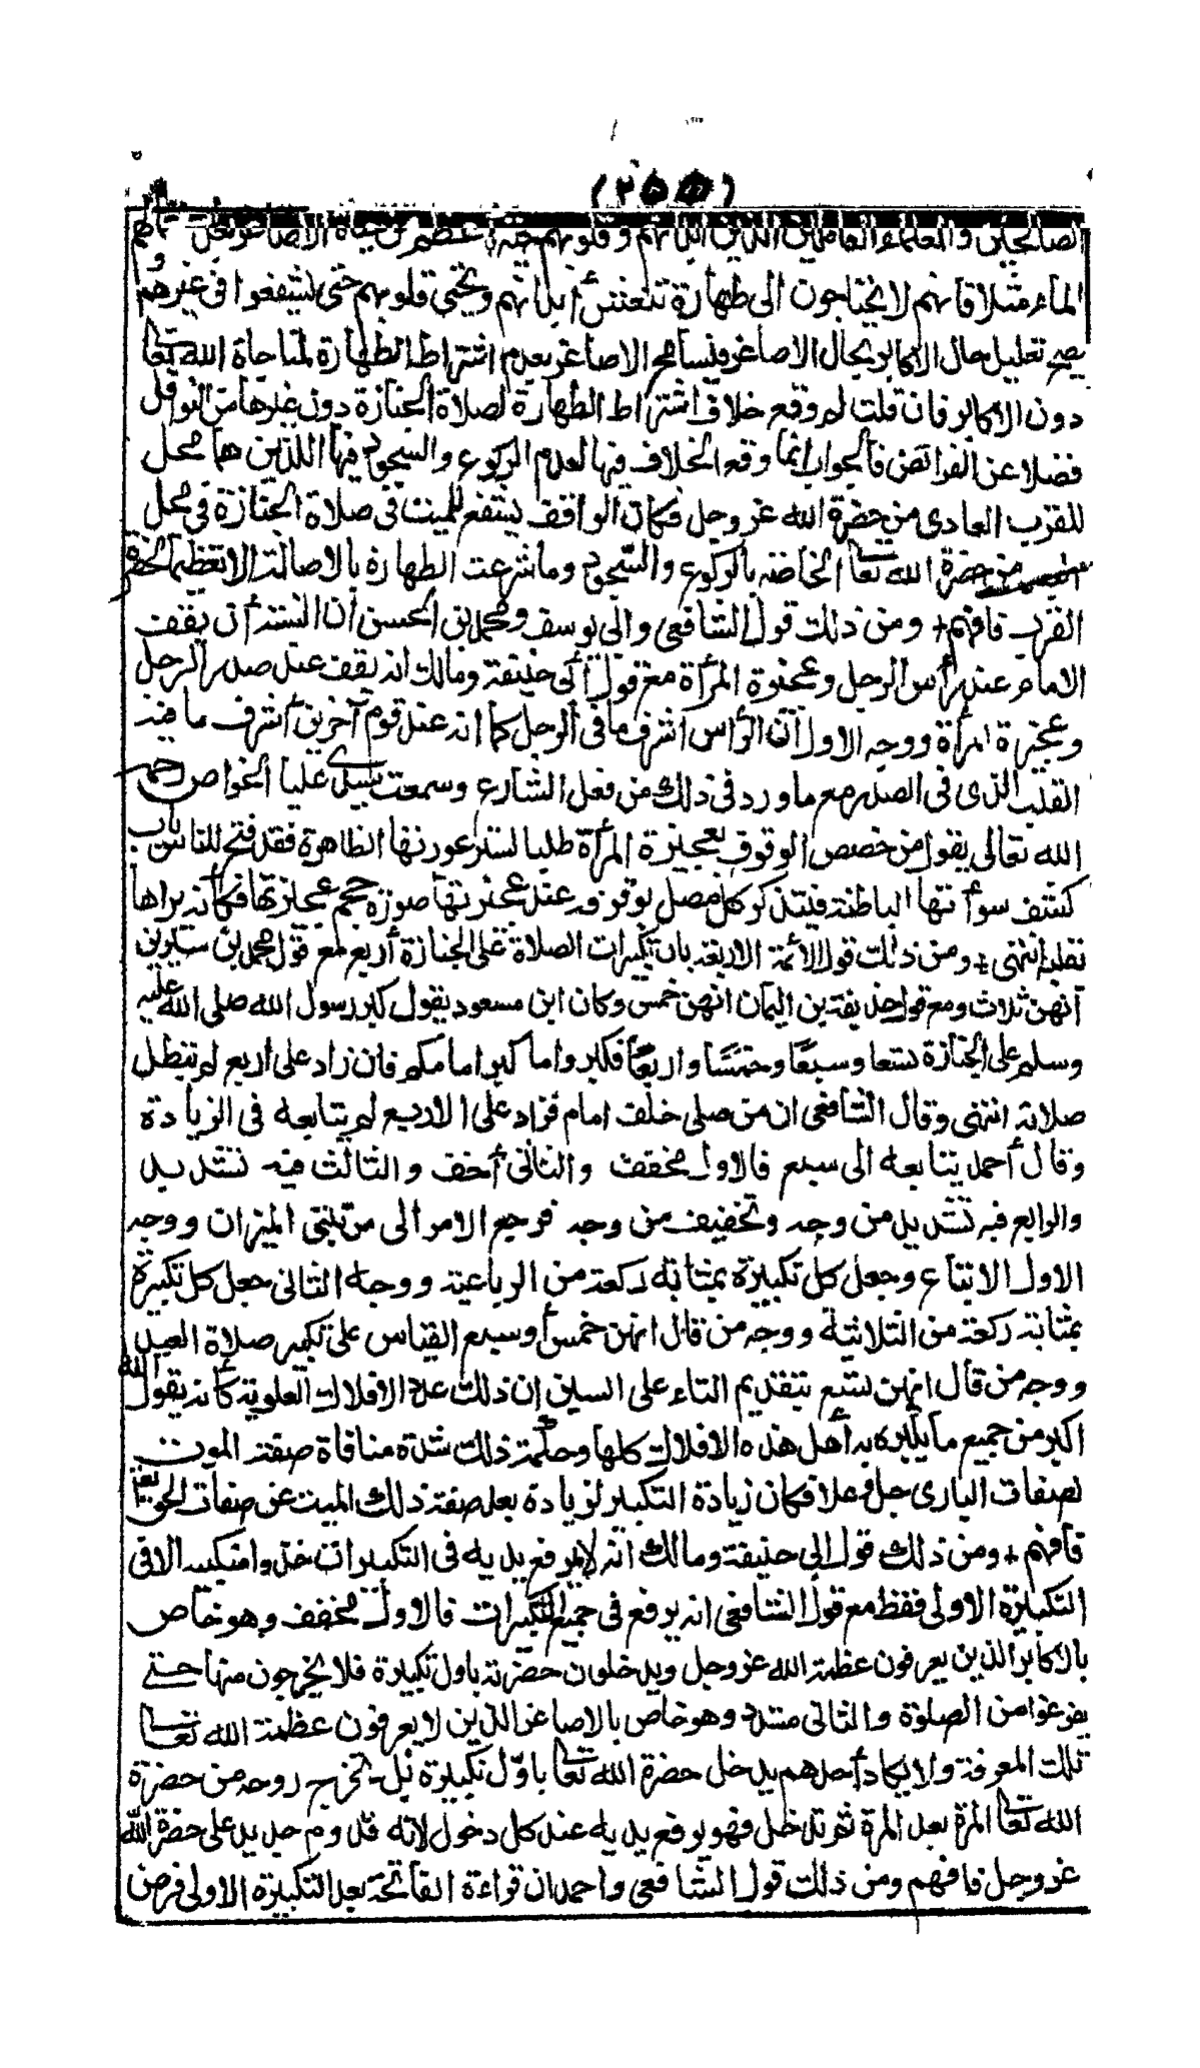 (٢٥٥)
الصالحين والعلماء العاملين الذين ابدانهم وقلوبهم حية
الماء مثلا فانهم لا يحتاجون الى طهارة تنعش أبدانهم ويحيى قلوبهم حتى يشفعوا فى غيرهم
يصح تعليل حال الاكابر بحال الاصاغر فيسامح الاصاغر بعدم اشتراط الطهارة لمناجاة الله تعا
دون الاكابر فان قلت لم وقع خلاف اشتراط الطهارة لصلاة الجنازة دون غيرها من النوافل
فضلا عن الفرائض فالجواب انما وقع الخلاف فيها لعدم الركوع والسجود فيها اللذين هما محل
للقرب العادى من حضرة الله عز وجل فكان الواقف يشفع للميت فى صلاة الجنازة فى محل
من حضرة الله تعا الخاصة بالركوع والسجود وما شرعت الطهارة بالاصالة الا تعظيما لحضرة
القرب فافهم + ومن ذلك قول الشافعى وابى يوسف ومحمد بن الحسن ان السنة أن يقف
الامام عند رأس الرجل وعجيزة المرأة مع قول أبى حنيفة ومالك انه يقف عند صدر الرجل
وعجيزة المرأة ووجه الاول أن الرأس اشرف ما فى الرجل كما انه عند قوم آخرين أشرف ما فيه
القلب الذى فى الصدر مع ما ورد فى ذلك من فعل الشارع وسمعت سيدى عليا الخواص رحمه
الله تعالى يقول من خصص الوقوف بعجيزة المرأة طلبا لستر عورتها الظاهرة فقد فتح للناس باب
كشف سوأتها الباطنة فيتذكر كل مصل بوقوفه عند عجيزتها صورة حجم عجيزتها فكأنه يراها
بقلبه انتهى + ومن ذلك قول الأئمة الاربعة بان تكبيرات الصلاة على الجنازة أربع مع قول محمد بن سيرين
أنهن ثلاث ومع قول حذيفة بن اليمان انهن خمس وكان ابن مسعود يقول كبر رسول الله صلى الله عليه
وسلم على الجنازة تسعا وسبعا وخمسا واربعا فكبروا ما كبر امامكم فان زاد على اربع لم تبطل
صلاته انتهى وقال الشافعى ان من صلى خلف امام فزاد على الاربع لم يتابعه فى الزيادة
وقال أحمد يتابعه الى سبع فالاول مخفف والثانى أخف والثالث فيه تشديد
والرابع فيه تشديد من وجه وتخفيف من وجه فرجع الامر الى مرتبتى الميزان ووجه
الاول الاتباع وجعل كل تكبيرة بمثابة ركعة من الرباعية ووجه الثانى جعل كل تكبيرة
بمثابة ركعة من الثلاثية ووجه من قال انهن خمس وسبع القياس على تكبير صلاة العيد
ووجه من قال انهن تسع بتقديم التاء على السين إن ذلك عدد الافلاك العلوية كأنه يقول الله
اكبر من جميع ما يكبره به أهل هذه الافلاك كلها وحكمة ذلك شدة منافاة صفة الموت
لصفات البارى جل وعلا فكان زيادة التكبير لزيادة بعد صفة ذلك الميت عن صفات الحق تعا
فافهم + ومن ذلك قول ابى حنيفة ومالك انه لا يرفع يديه فى التكبيرات حذو منكبيه الا فى
التكبيرة الاولى فقط مع قول الشافعى انه يرفع فى جميع التكبيرات فالاول مخفف وهو خاص
بالاكابر الذين يعرفون عظمة الله عز وجل ويدخلون حضرته باول تكبيرة فلا يخرجون منها حتى
يفرغوا من الصلوة والثانى مشدد وهو خاص بالاصاغر الذين لا يعرفون عظمة الله تعا
تلك المعرفة ولا يكاد أحدهم يدخل حضرة الله تعا باول تكبيرة بل تخرج روحه من حضرة
الله تعا المرة بعد المرة ثم تدخل فهو يرفع يديه عند كل دخول لانه قدوم جديد على حضرة الله
عز وجل فافهم ومن ذلك قول الشافعى واحمد ان قراءة الفاتحة بعد التكبيرة الاولى فرض